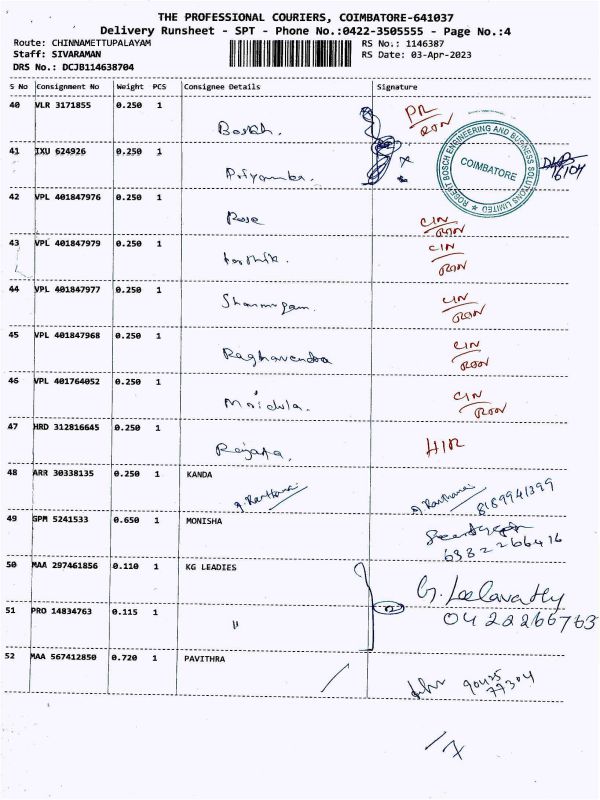 THE PROFESSIONAL COURIERS, COIMBATORE-641037
Delivery Runsheet - SPT - Phone No.:0422-3505555 - Page No.:4
Route: CHINNAMETTUPALAYAM RS No.: 1146387
Staff: SIVARAMAN RS Date: 03-Apr-2023
DRS No.: DCJB114638704
S No Consignment No Weight PCS Consignee Details Signature
40 VLR 3171855 0.250 1
ROBERT BOSCH ENGINEERING AND BUSINESS SOLUTIONS LIMITED
COIMBATORE
41 IXU 624926 0.250 1
Priyanka.
42 VPL 401847976 0.250 1
Rose CIN
43 VPL 401847979 0.250 1
Karthik. CIN
44 VPL 401847977 0.250 1
Shanmugam. CIN
45 VPL 401847968 0.250 1
Raghavendra CIN
46 VPL 401764052 0.250 1
Mridula. CIN
47 HRD 312816645 0.250 1
48 ARR 30338135 0.250 1 KANDA
8189941399
49 GPM 5241533 0.650 1 MONISHA
6382266416
50 MAA 297461856 0.110 1 KG LEADIES
G. Leelavathy
51 PRO 14834763 0.115 1
" 04222266763
52 MAA 567412850 0.720 1 PAVITHRA
90435
77304